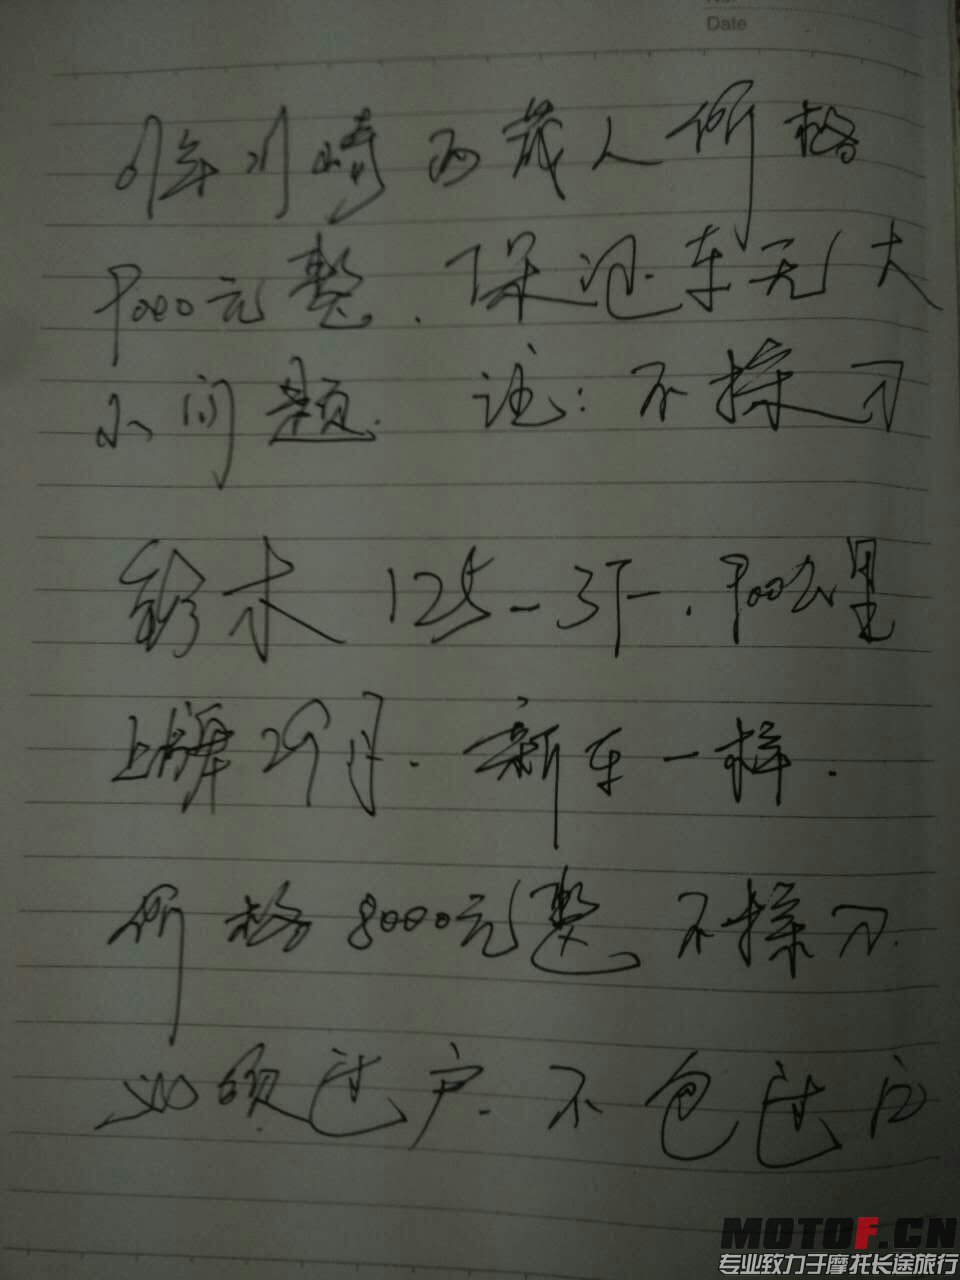 No.
Date
川崎西风人价格
9000元整.保过车无大
小问题. 注:不择刀
铃木125-3F-.900公里
上牌29月.新车一样.
价格8000元整 不择刀.
必须过户.不包过户
MOTOF.CN
专业致力于摩托长途旅行